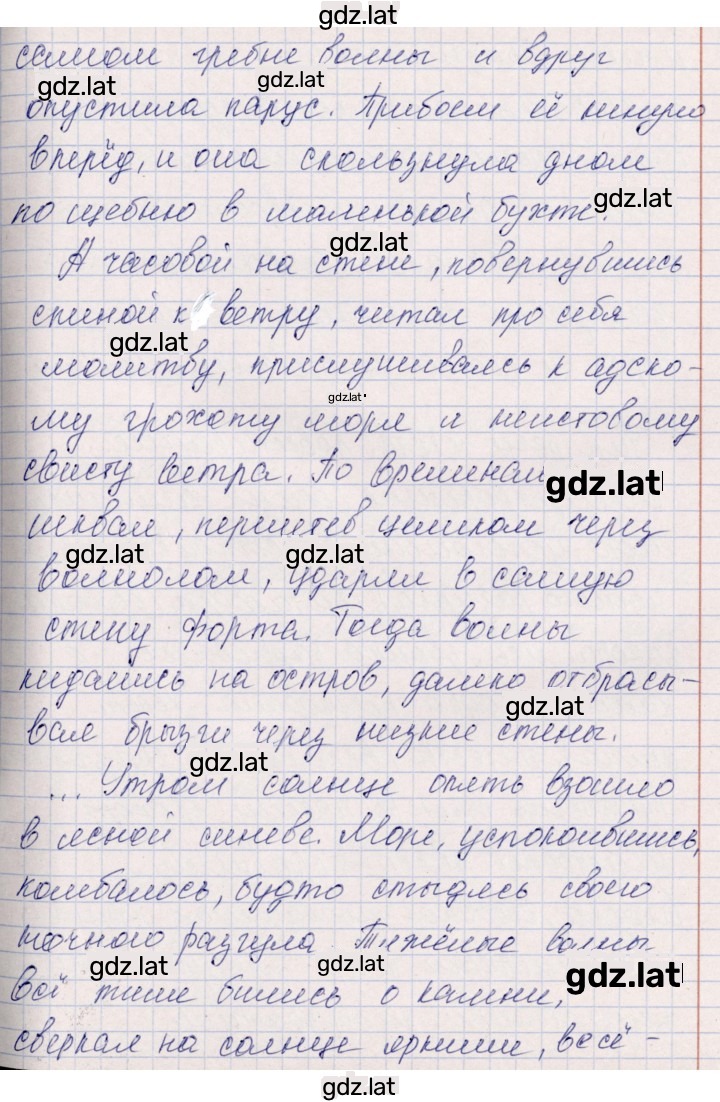 gdz.lat
самом гребне волны и вдруг
gdz.lat gdz.lat
опустила парус. Прибоем её кинуло
вперёд, и она скользнула дном
по щебню в маленькой бухте.
gdz.lat
А часовой на стене, повернувшись
gdz.lat
спиной к ветру, читал про себя
gdz.lat
молитву, прислушиваясь к адско-
gdz.lat
му грохоту моря и неистовому
свисту ветра. По временам
gdz.lat
шквал, перелетев целиком через
gdz.lat gdz.lat
волнолом, ударял в самую
стену форта. Тогда волны
кидались на остров, далеко отбрасы-
gdz.lat
вая брызги через низкие стены.
gdz.lat
... Утром солнце опять взошло
в ясной синеве. Море, успокоившись,
колебалось, будто стыдясь своего
ночного разгула Тяжёлые волны
gdz.lat gdz.lat gdz.lat
всё тише бились о камни,
сверкая на солнце яркими, весё-
gdz.lat